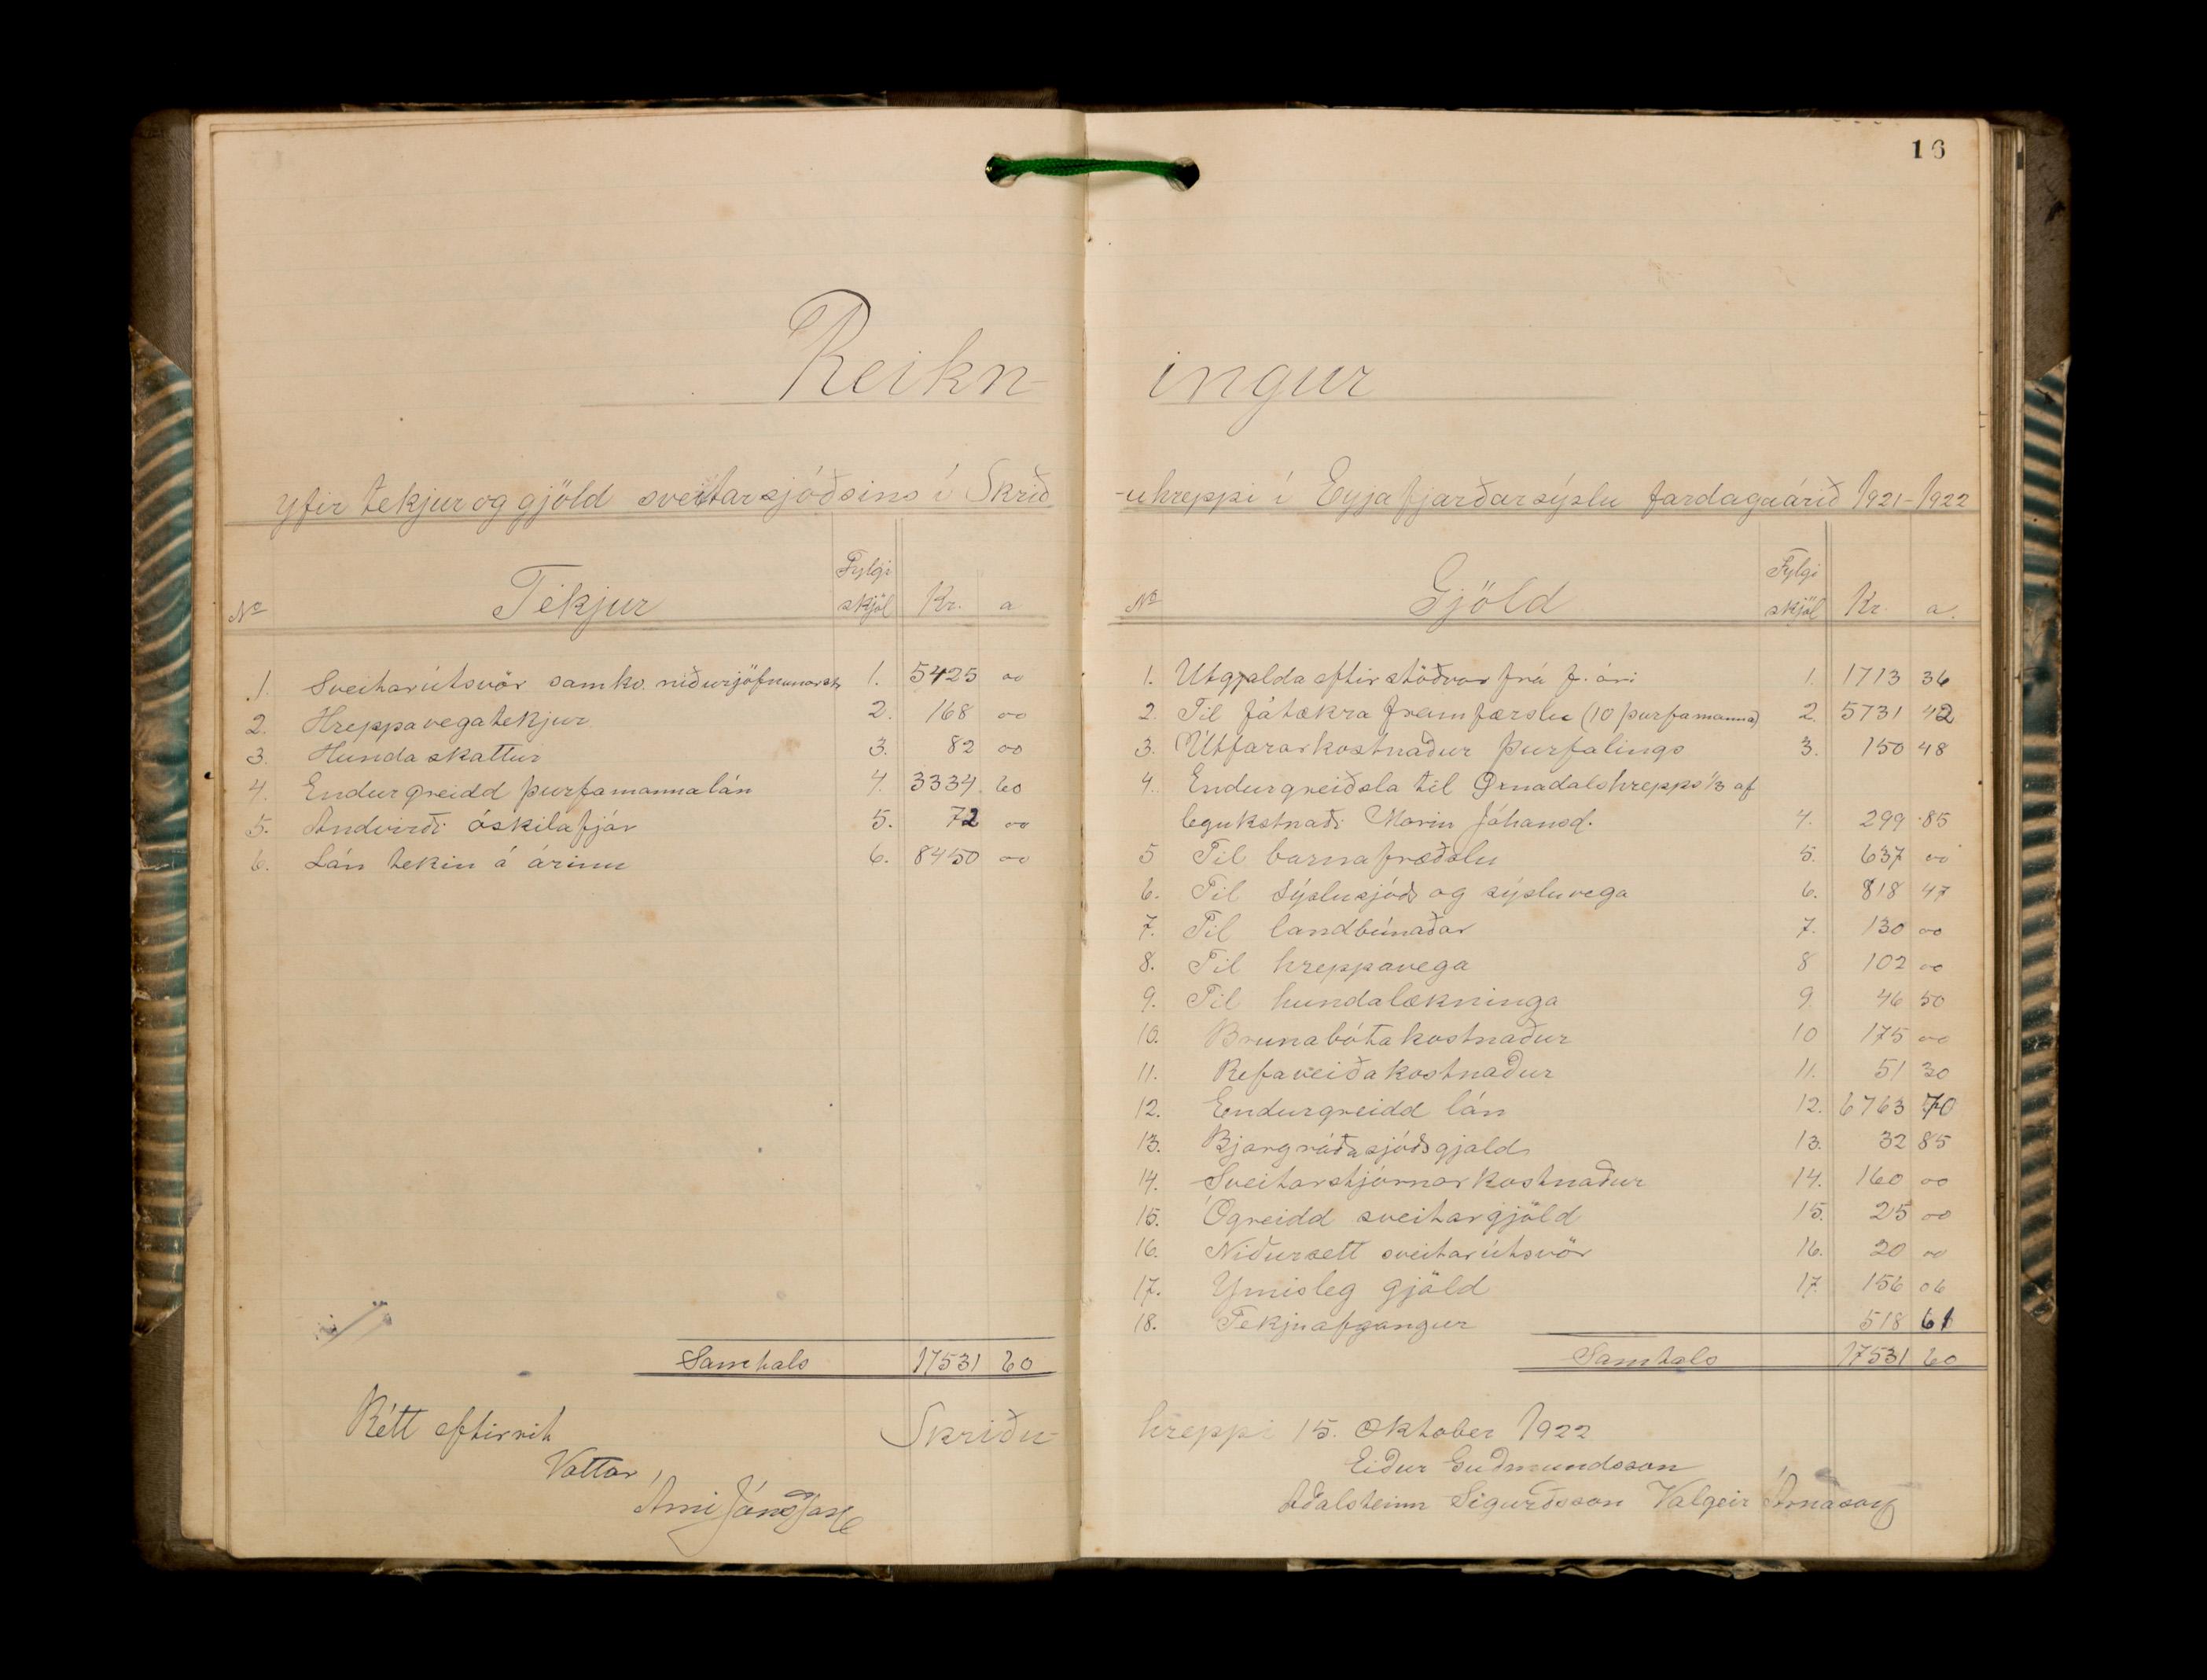 16
Reikn-
ingur
yfir tekjur og gjöld sveitarsjóðsins í Skrið
-uhreppi í Eyjafjarðarsýslu fardagaárið 1921-1922
No Tekjur Fylgi skjöl Kr. a
1. Sveitarútsvör samkv. niðurjöfnunarskr 1. 5425 00
2. Hreppavegatekjur 2. 168 00
3. Hundaskattur 3. 82 00
4. Endurgreidd þurfamannalán 4. 3334 60
5. Andvirði óskilafjár 5. 72 00
6. Lán tekin á árinu 6. 8450 00
Samtals 17531 60
Rétt eftirrit
Vottar,
Árni Jónsson
Skriðu-
No Gjöld Fylgi skjöl Kr. a.
1. Utgjalda eftirstöðvar frá f. ári 1. 1713 36
2. Til fátækra framfærslu (10 þurfamanna) 2. 5731 42
3. Útfararkostnaður þurfalings 3. 150 48
4. Endurgreiðsla til Arnadalshrepps 1/3 af
legukstnaði Marin Jóhansd. 4. 299 85
5 Til barnafræðslu 5. 637 00
6. Til Sýslusjóðs og sýsluvega 6. 818 47
7. Til landbúnaðar 7. 130 00
8. Til hreppavega 8 102 00
9. Til hundalækninga 9 46 50
10. Brunabótakostnaður 10 175 00
11. Refaveiðakostnaður 11. 51 30
12. Endurgreidd lán 12. 6763 70
13. Bjargráðasjóðsgjald 13. 32 85
14. Sveitarstjórnarkostnaður 14. 160 00
15. Ógreidd sveitargjöld 15. 25 00
16. Niðursett sveitarútsvör 16. 20 00
17. Ymisleg gjöld 17. 156 06
18. Tekjuafgangur 518 61
Samtals 17531 60
hreppi 15. Oktober 1922
Eiður Guðmundsson
Aðalsteinn Sigurðsson Valgeir Árnason